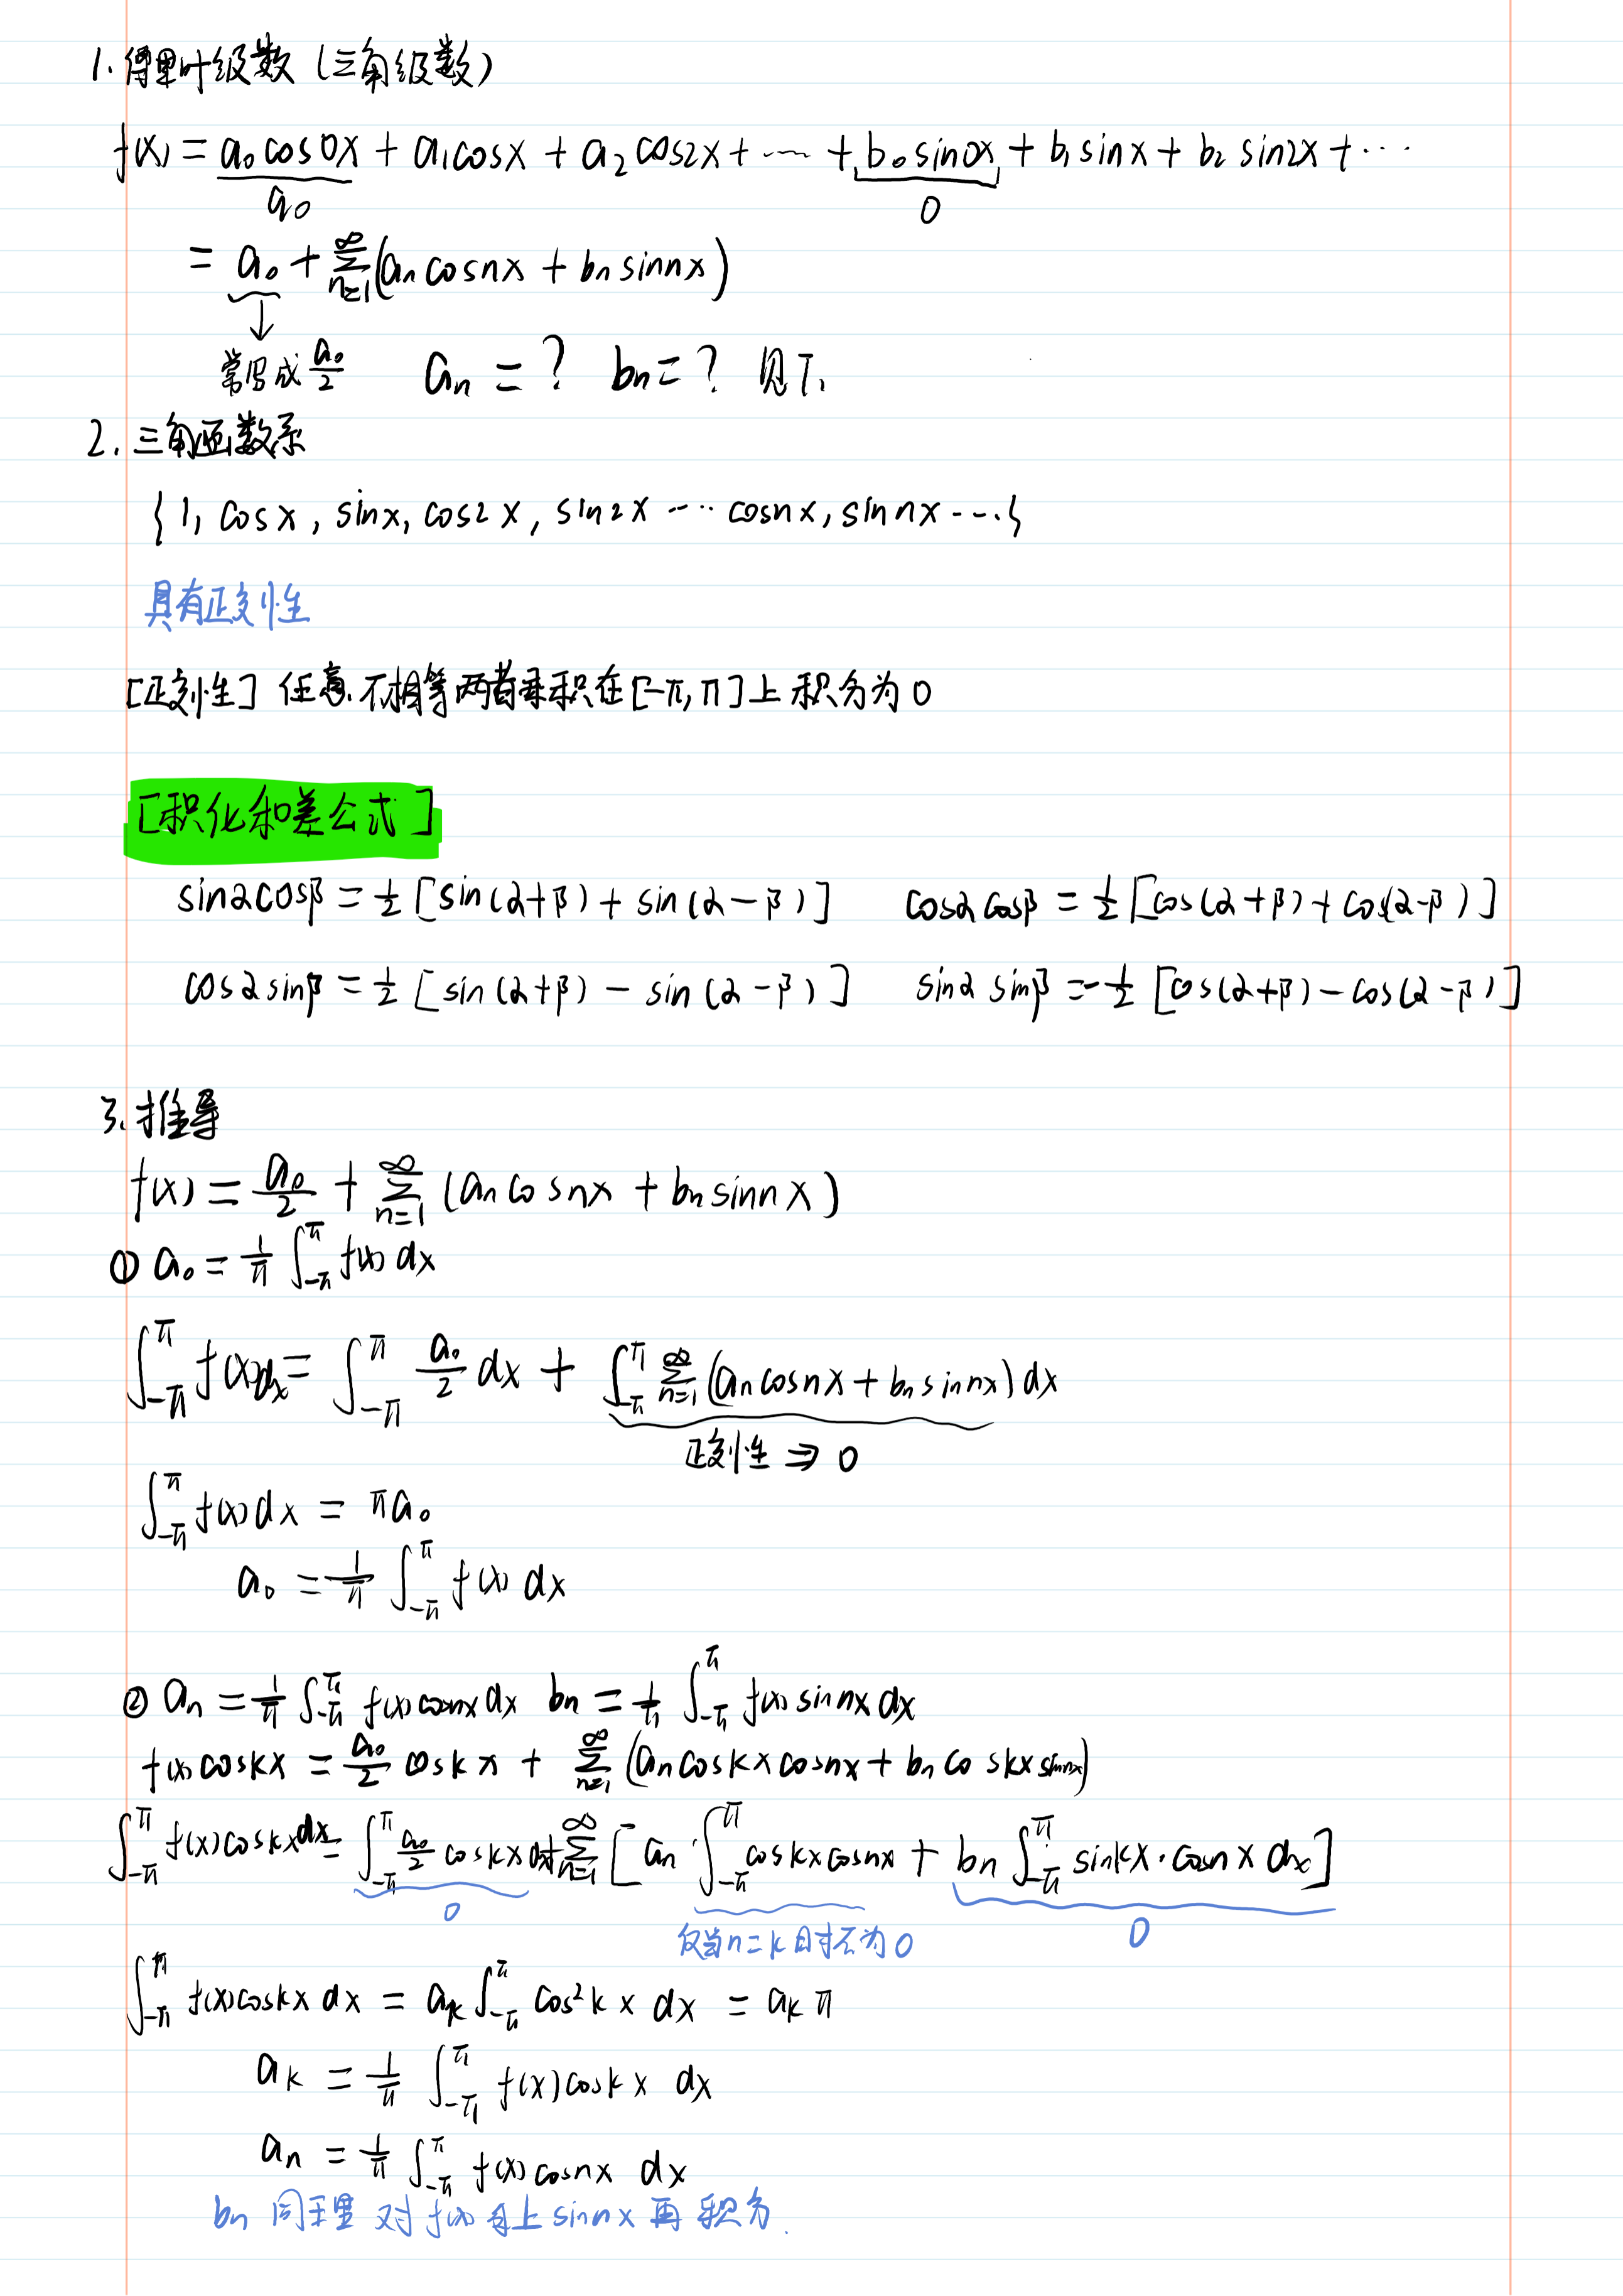 1. 傅里叶级数 (三角级数)
f(x) = a₀cos0x + a₁cosx + a₂cos2x + ⋯ + b₀sin0x + b₁sinx + b₂sin2x + ⋯
a₀ 0
= a₀ + ∑_{n=1}^{∞} (aₙcosnx + bₙsinnx)
↓
常写成 a₀/2 aₙ = ? bₙ = ? 见下.
2. 三角函数系
{1, cosx, sinx, cos2x, sin2x ⋯ cosnx, sinnx ⋯}
具有正交性
[正交性] 任意不相等两者乘积在[-π, π]上积分为0
[积化和差公式]
sinαcosβ = ½[sin(α+β) + sin(α-β)] cosαcosβ = ½[cos(α+β) + cos(α-β)]
cosαsinβ = ½[sin(α+β) - sin(α-β)] sinαsinβ = -½[cos(α+β) - cos(α-β)]
3. 推导
f(x) = a₀/2 + ∑_{n=1}^{∞} (aₙcosnx + bₙsinnx)
① a₀ = 1/π ∫_{-π}^{π} f(x)dx
∫_{-π}^{π} f(x)dx = ∫_{-π}^{π} a₀/2 dx + ∫_{-π}^{π} ∑_{n=1}^{∞} (aₙcosnx + bₙsinnx)dx
正交性 ⇒ 0
∫_{-π}^{π} f(x)dx = πa₀
a₀ = 1/π ∫_{-π}^{π} f(x)dx
② aₙ = 1/π ∫_{-π}^{π} f(x)cosnxdx bₙ = 1/π ∫_{-π}^{π} f(x)sinnxdx
f(x)coskx = a₀/2 coskx + ∑_{n=1}^{∞} (aₙcoskxcosnx + bₙcoskxsinnx)
∫_{-π}^{π} f(x)coskxdx = ∫_{-π}^{π} a₀/2 coskxdx + ∑_{n=1}^{∞} [aₙ ∫_{-π}^{π} coskxcosnx + bₙ ∫_{-π}^{π} sinkx·cosnxdx]
0 仅当n=k时不为0 0
∫_{-π}^{π} f(x)coskxdx = aₖ ∫_{-π}^{π} cos²kxdx = aₖπ
aₖ = 1/π ∫_{-π}^{π} f(x)coskxdx
aₙ = 1/π ∫_{-π}^{π} f(x)cosnxdx
bₙ 同理 对f(x)乘上sinnx再积分.